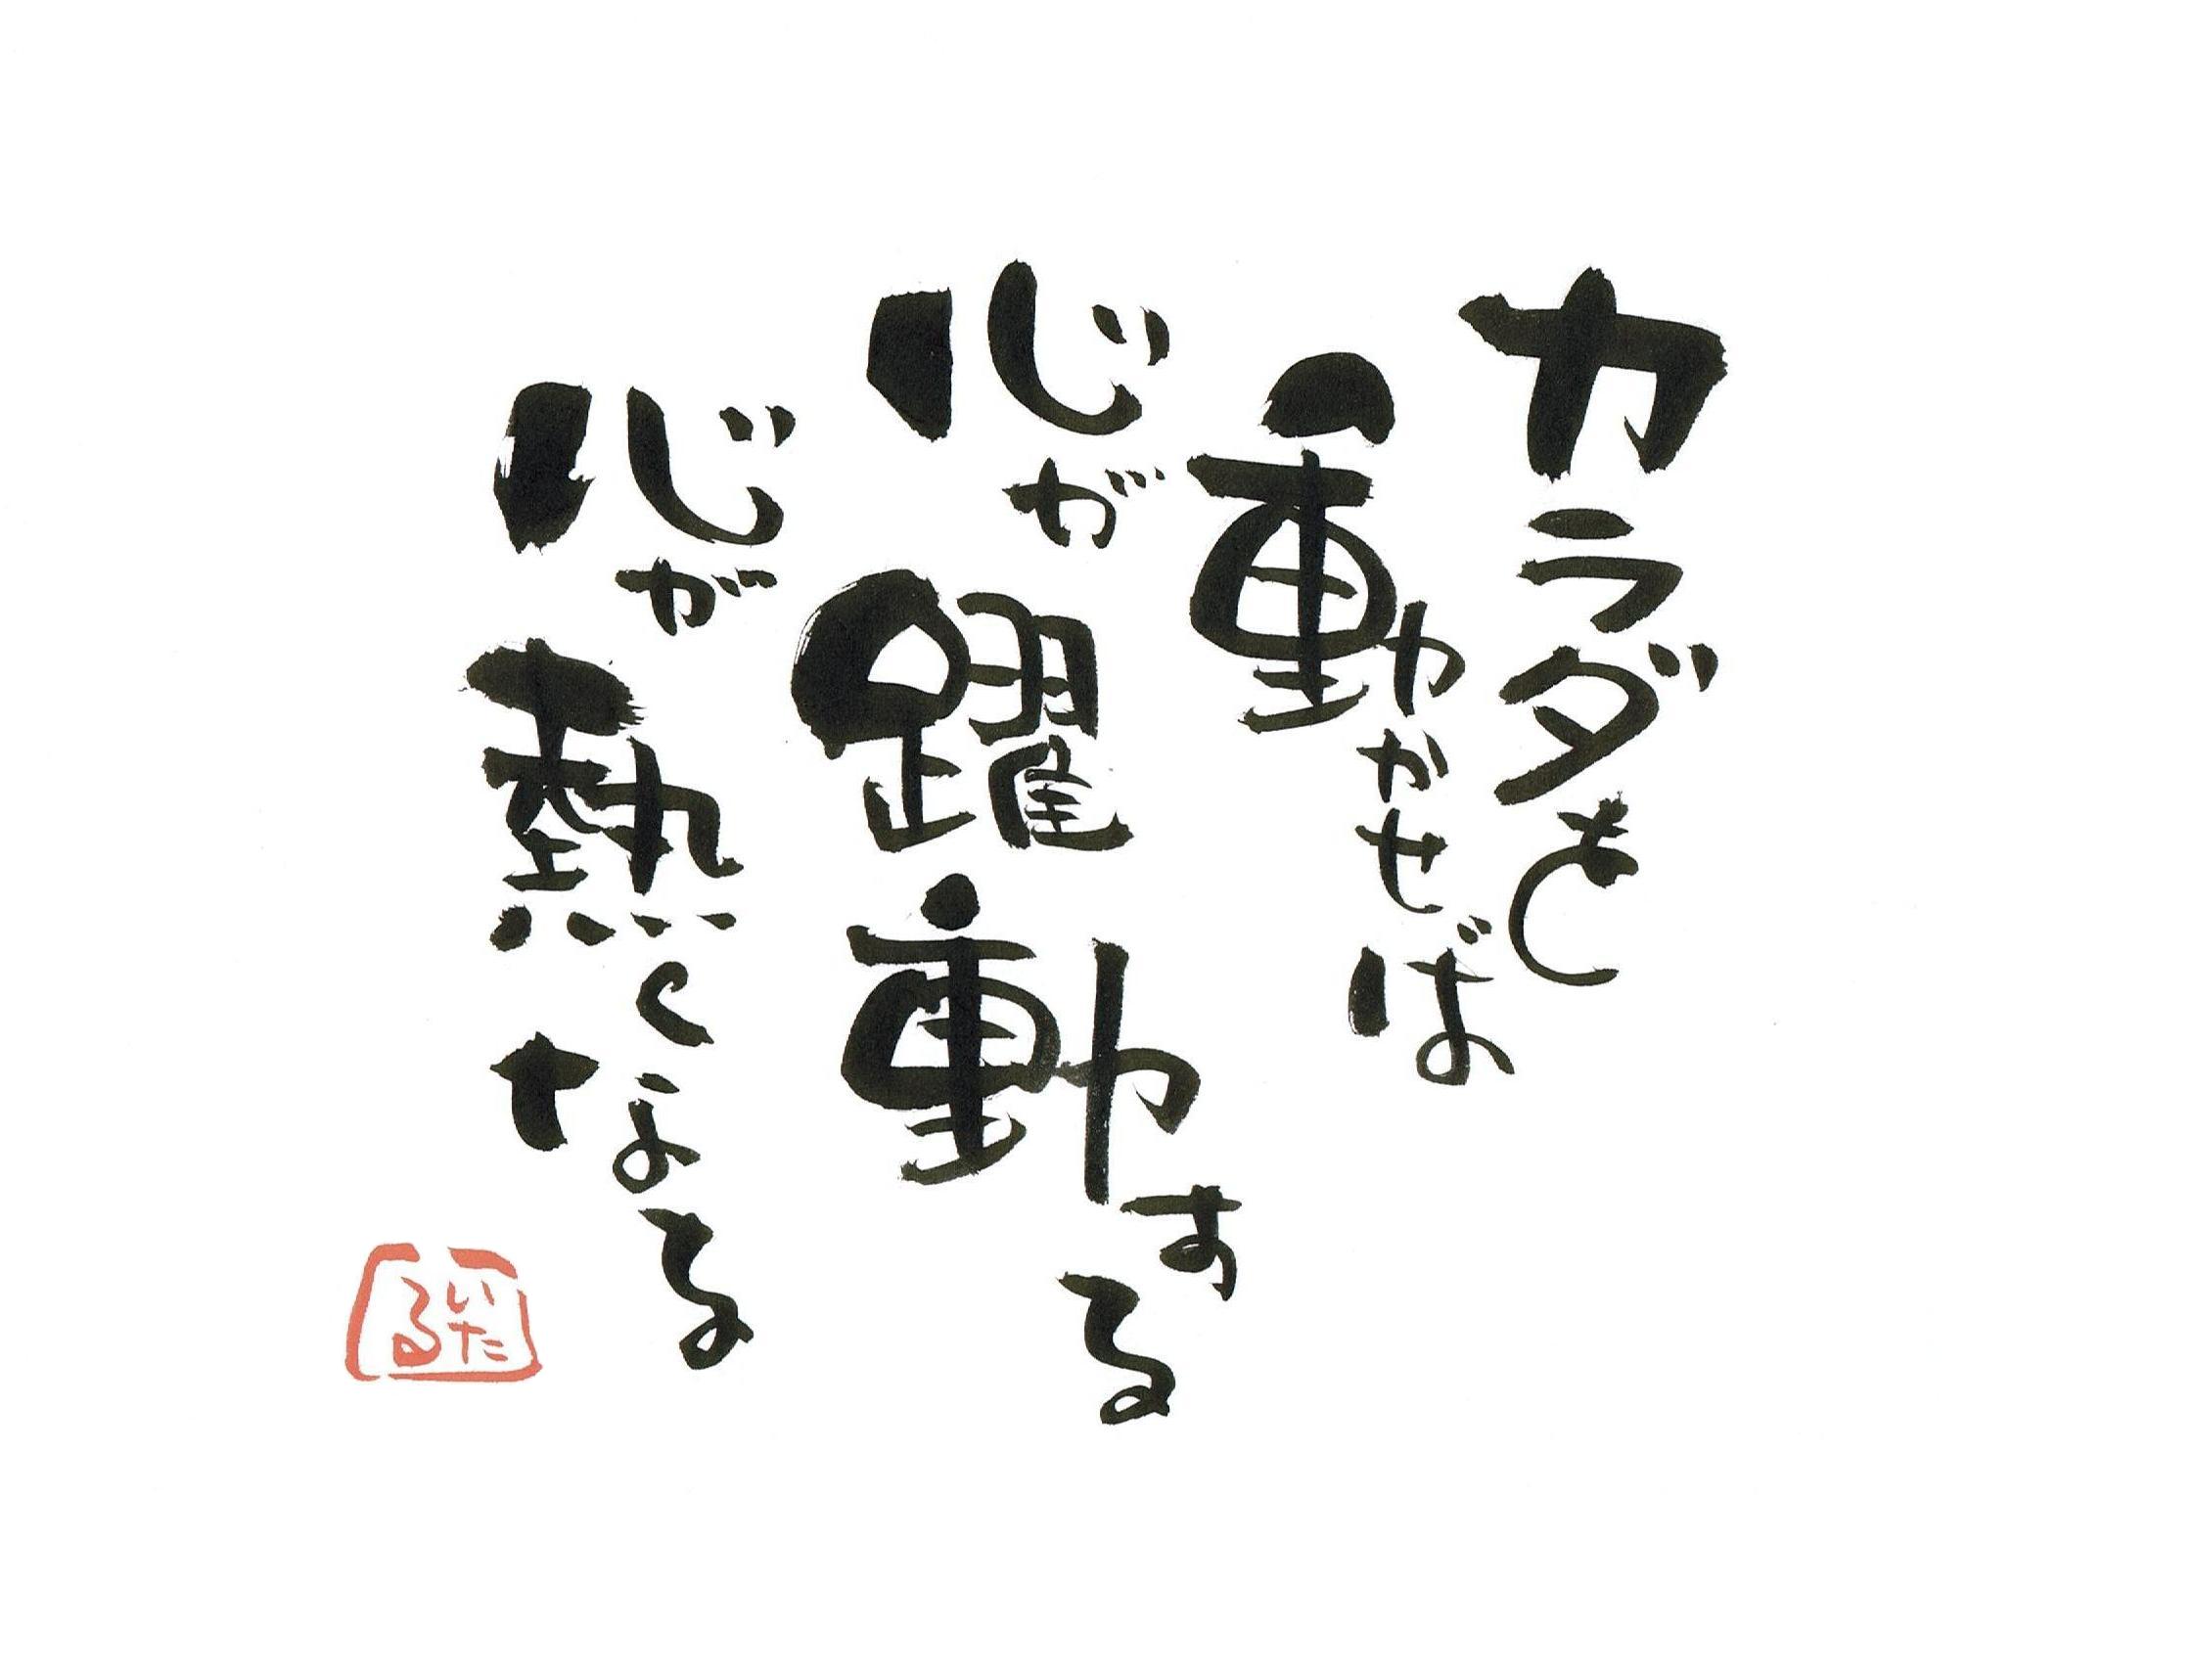 カラダを
動かせば
心が躍動する
心が熱くなる
いたる